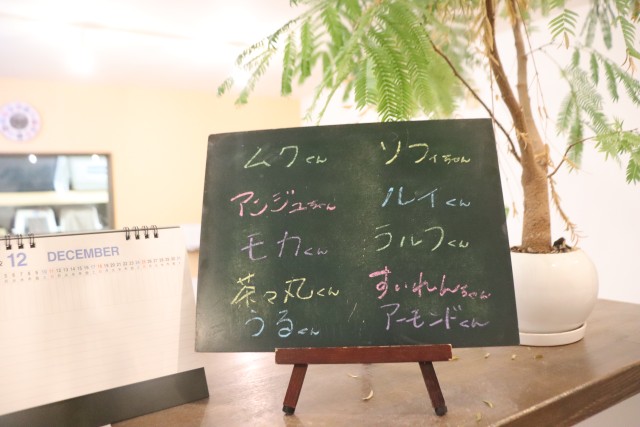 ムクくん
アンジュちゃん
モカくん
茶々丸くん
うるくん
ソフィちゃん
ルイくん
ラルフくん
すいれんちゃん
アーモンドくん
12 DECEMBER